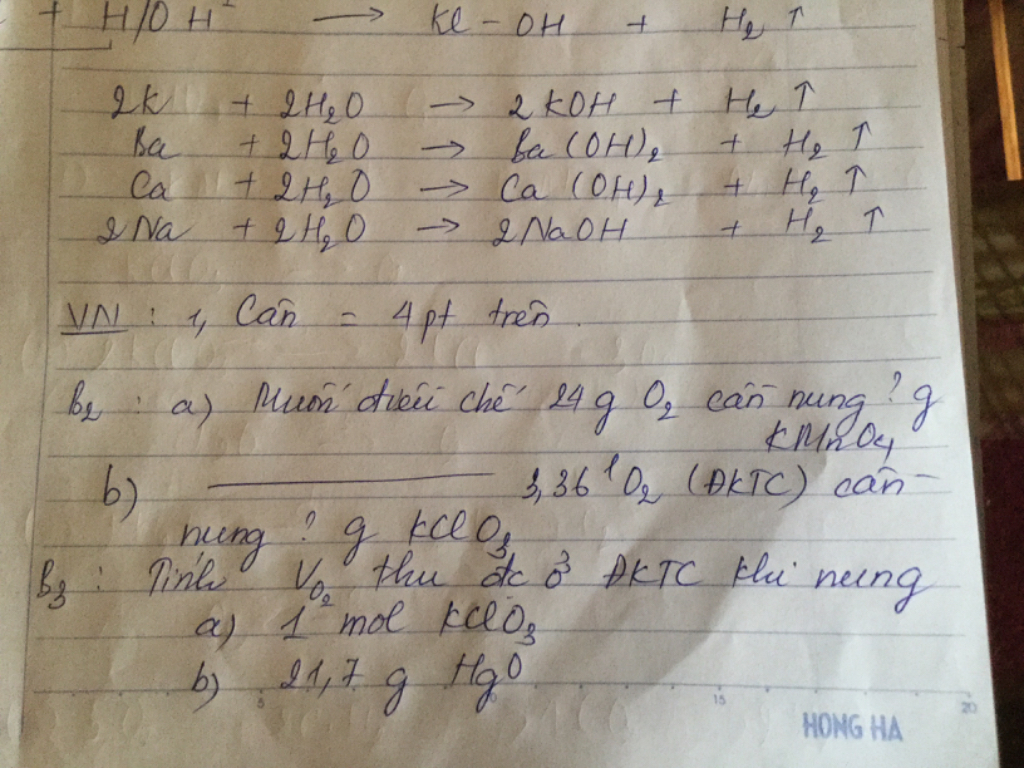 + H/OH → Kl - OH + H₂ ↑
2K + 2H₂O → 2KOH + H₂ ↑
Ba + 2H₂O → Ba(OH)₂ + H₂ ↑
Ca + 2H₂O → Ca(OH)₂ + H₂ ↑
2Na + 2H₂O → 2NaOH + H₂ ↑
VN : 1, Cân = 4pt trên.
B₂ : a) Muốn điều chế 24g O₂ cần nung ? g
KMnO₄
b) 3,36 l O₂ (ĐKTC) cần
nung ? g KClO₃
B₃ : Tính V O₂ thu đc ở ĐKTC khi nung
a) 1 mol KClO₃
b) 21,7 g HgO
5 15 20
HONG HA